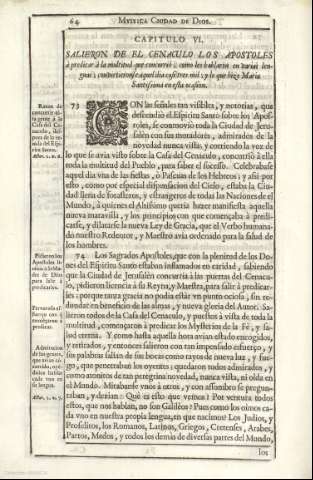 64 MYSTICA CIUDAD DE DIOS.
CAPITULO VI.
SALIERON DE EL CENACULO LOS APOSTOLES
à predicar à la multitud que concurriò; como les hablaron en varias len-
guas; convirtieronse aquel dia casi tres mil; y lo que hizo Maria
Santissima en esta ocasion.
73 CON las señales tan visibles, y notorias, que
descendiò el Espiritu Santo sobre los Apos-
toles, se commoviò toda la Ciudad de Jeru-
salèn con sus moradores, admirados de la
novedad nunca vista: y corriendo la voz de
lo que se avia visto sobre la Casa del Cenaculo, concurriò à ella
toda la multitud del Pueblo, para saber el sucesso. Celebrabase
aquel dia vna de las fiestas, ò Pasquas de los Hebreos; y assi por
esto, como por especial dispensacion del Cielo, estaba la Ciu-
dad llena de forasteros, y estrangeros de todas las Naciones de el
Mundo, à quienes el Altissimo queria hazer manifiesta aquella
nueva maravilla, y los principios con que començaba à predi-
carse, y dilatarse la nueva Ley de Gracia, que el Verbo humana-
do nuestro Redentor, y Maestro avia ordenado para la salud de
los hombres.
74 Los Sagrados Apostoles, que con la plenitud de los Do-
nes del Espiritu Santo estaban inflamados en caridad, sabiendo
que la Ciudad de Jerusalèn concurria à las puertas del Cenacu-
lo, pidieron licencia à su Reyna, y Maestra, para salir à predicar-
les; porque tanta gracia no podia estàr vn punto ociosa, sin re-
dundar en beneficio de las almas, y nueva gloria del Autor. Sa-
lieron todos de la Casa del Cenaculo, y puestos à vista de toda la
multitud, començaron à predicar los Mysterios de la Fè, y sa-
lud eterna. Y como hasta aquella hora avian estado encogidos,
y retirados, y entonces salieron con tan impensado esfuerço, y
sus palabras salian de sus bocas como rayos de nueva luz, y fue-
go, que penetraban los oyentes; quedaron todos admirados, y
como atonitos de tan peregrina novedad, nunca vista, ni oìda en
el Mundo. Mirabanse vnos à otros, y con assombro se pregun-
taban, y dezian: Què es esto que vemos? Por ventura todos
estos, que nos hablan, no son Galileos? Pues como los oìmos ca-
da vno en nuestra propia lengua, en que nacimos? Los Judios, y
Proselitos, los Romanos, Latinos, Griegos, Cretenses, Arabes,
Partos, Medos, y todos los demàs de diversas partes del Mundo,
los
Razon de
concurrir tã-
ta gente à la
Casa del Ce-
naculo, des-
pues de la ve-
nida del Es-
piritu Santo.
Pidieron los
Apostoles li-
cencia à la Ma-
dre de Dios
para salir à
predicarles.
Admiracion
de las gentes,